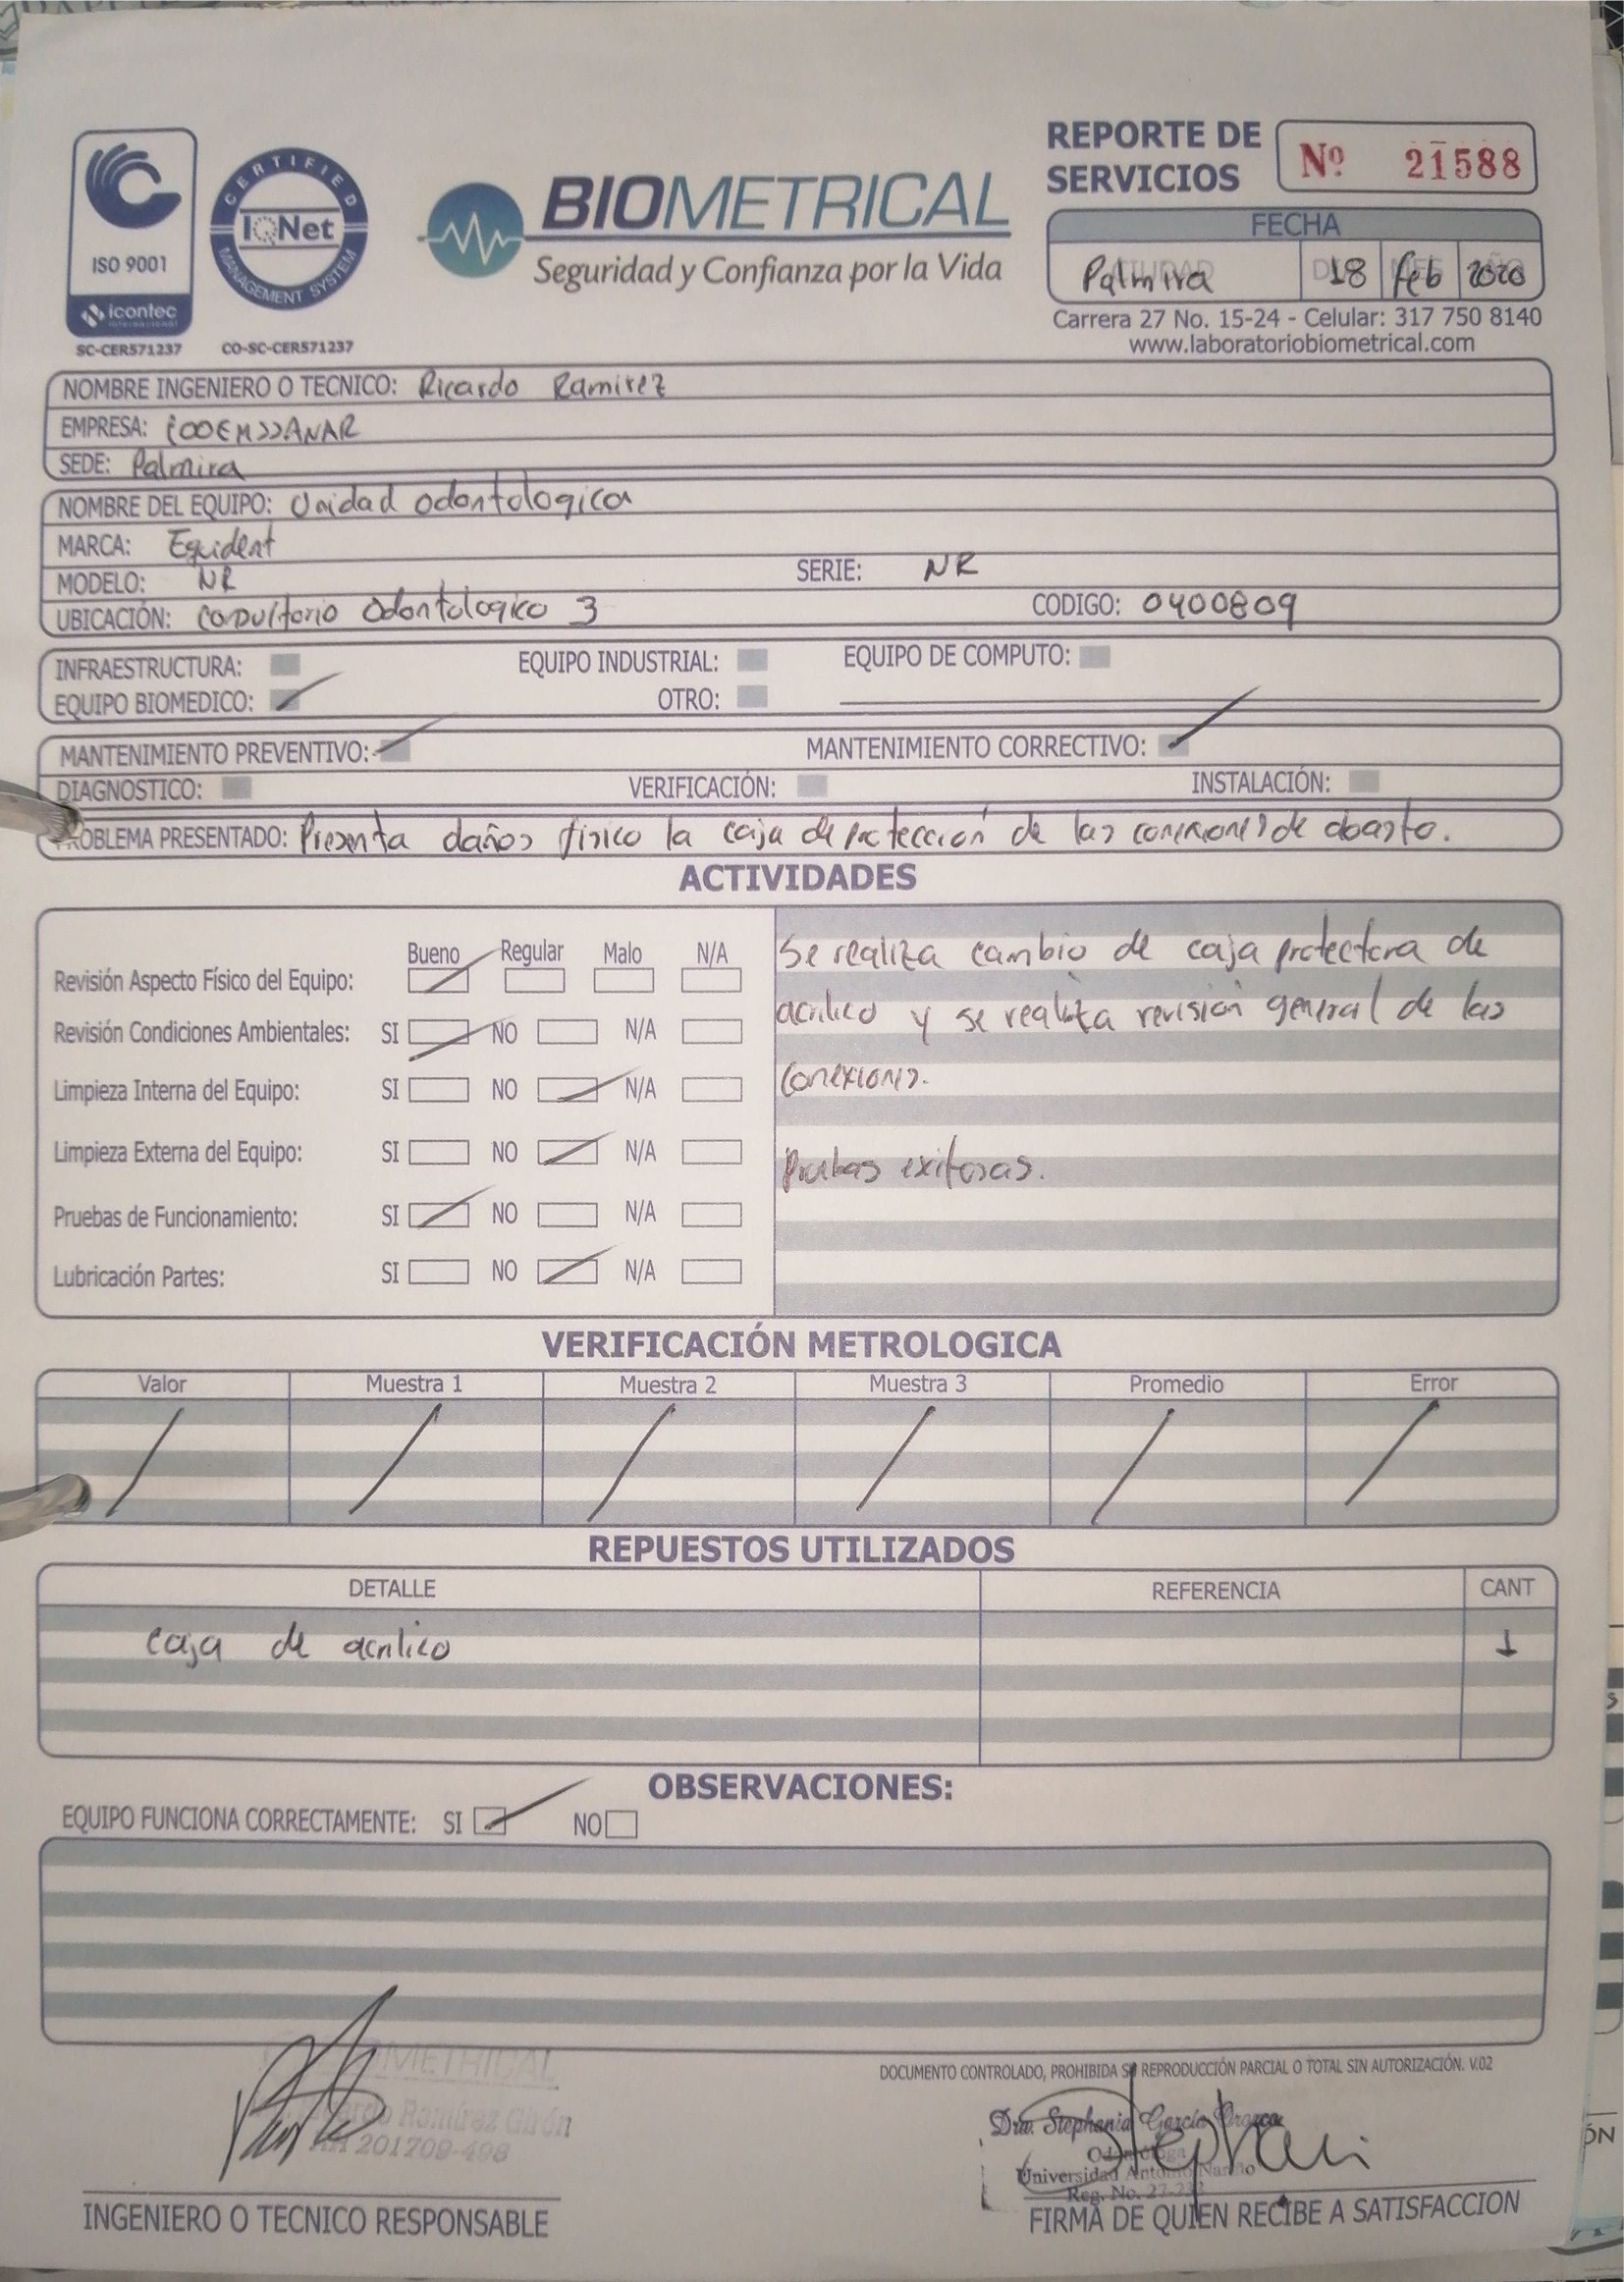 REPORTE DE
SERVICIOS
Nº 21588
ISO 9001
icontec
internacional
SC-CER571237
CERTIFIED
IQNet
MANAGEMENT SYSTEM
CO-SC-CER571237
BIOMETRICAL
Seguridad y Confianza por la Vida
FECHA
Palmira 18 feb 2020
Carrera 27 No. 15-24 - Celular: 317 750 8140
www.laboratoriobiometrical.com
NOMBRE INGENIERO O TECNICO: Ricardo Ramirez
EMPRESA:
SEDE: Palmira
NOMBRE DEL EQUIPO: Unidad odontologica
MARCA: Equident
MODELO: NR SERIE: NR
UBICACIÓN: Consultorio Odontologico 3 CODIGO: 0400809
INFRAESTRUCTURA: EQUIPO INDUSTRIAL: EQUIPO DE COMPUTO:
EQUIPO BIOMEDICO: OTRO:
MANTENIMIENTO PREVENTIVO: MANTENIMIENTO CORRECTIVO:
DIAGNOSTICO: VERIFICACIÓN: INSTALACIÓN:
PROBLEMA PRESENTADO: Presenta daños fisico la caja de protección de las conexiones de abasto.
ACTIVIDADES
Bueno Regular Malo N/A
Revisión Aspecto Físico del Equipo:
Revisión Condiciones Ambientales: SI NO N/A
Limpieza Interna del Equipo: SI NO N/A
Limpieza Externa del Equipo: SI NO N/A
Pruebas de Funcionamiento: SI NO N/A
Lubricación Partes: SI NO N/A
Se realiza cambio de caja protectora de
acrilico y se realiza revisión general de las
conexiones.
Pruebas exitosas.
VERIFICACIÓN METROLOGICA
Valor Muestra 1 Muestra 2 Muestra 3 Promedio Error
REPUESTOS UTILIZADOS
DETALLE REFERENCIA CANT
caja de acrilico 1
OBSERVACIONES:
EQUIPO FUNCIONA CORRECTAMENTE: SI NO
DOCUMENTO CONTROLADO, PROHIBIDA SU REPRODUCCIÓN PARCIAL O TOTAL SIN AUTORIZACIÓN. V.02
Ramírez Girón
201709-498
Dra. Stephania García
Universidad Antonio Nariño
Reg. No.
INGENIERO O TECNICO RESPONSABLE
FIRMA DE QUIEN RECIBE A SATISFACCION